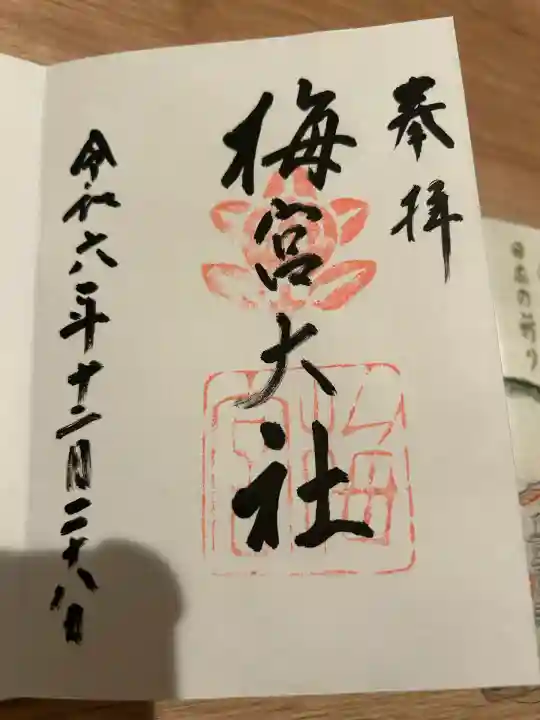 奉拝
梅宮大社
令和六年十二月二十八日
日本の祈り